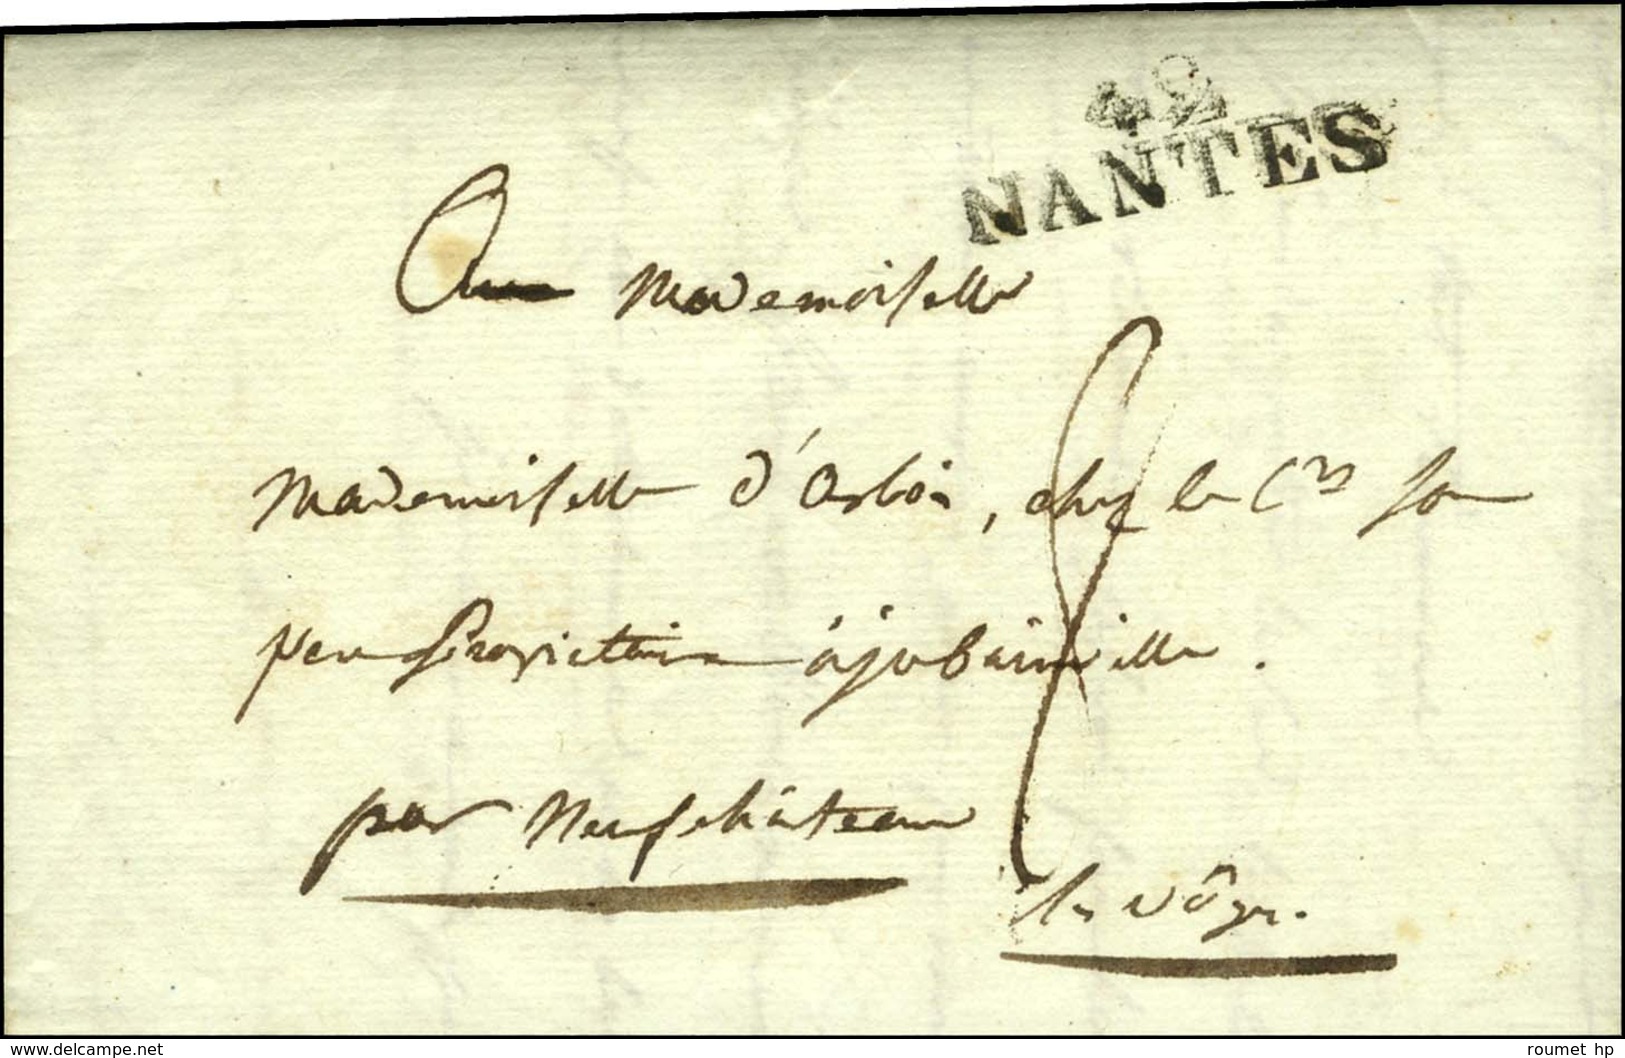 42
NANTES
A Mademoiselle
Mademoiselle d'Arbois, chez le C.en son
pere Proprietaire à jubainville.
par Neufchâteau
les Vôges.
www.delcampe.net
roumet hp